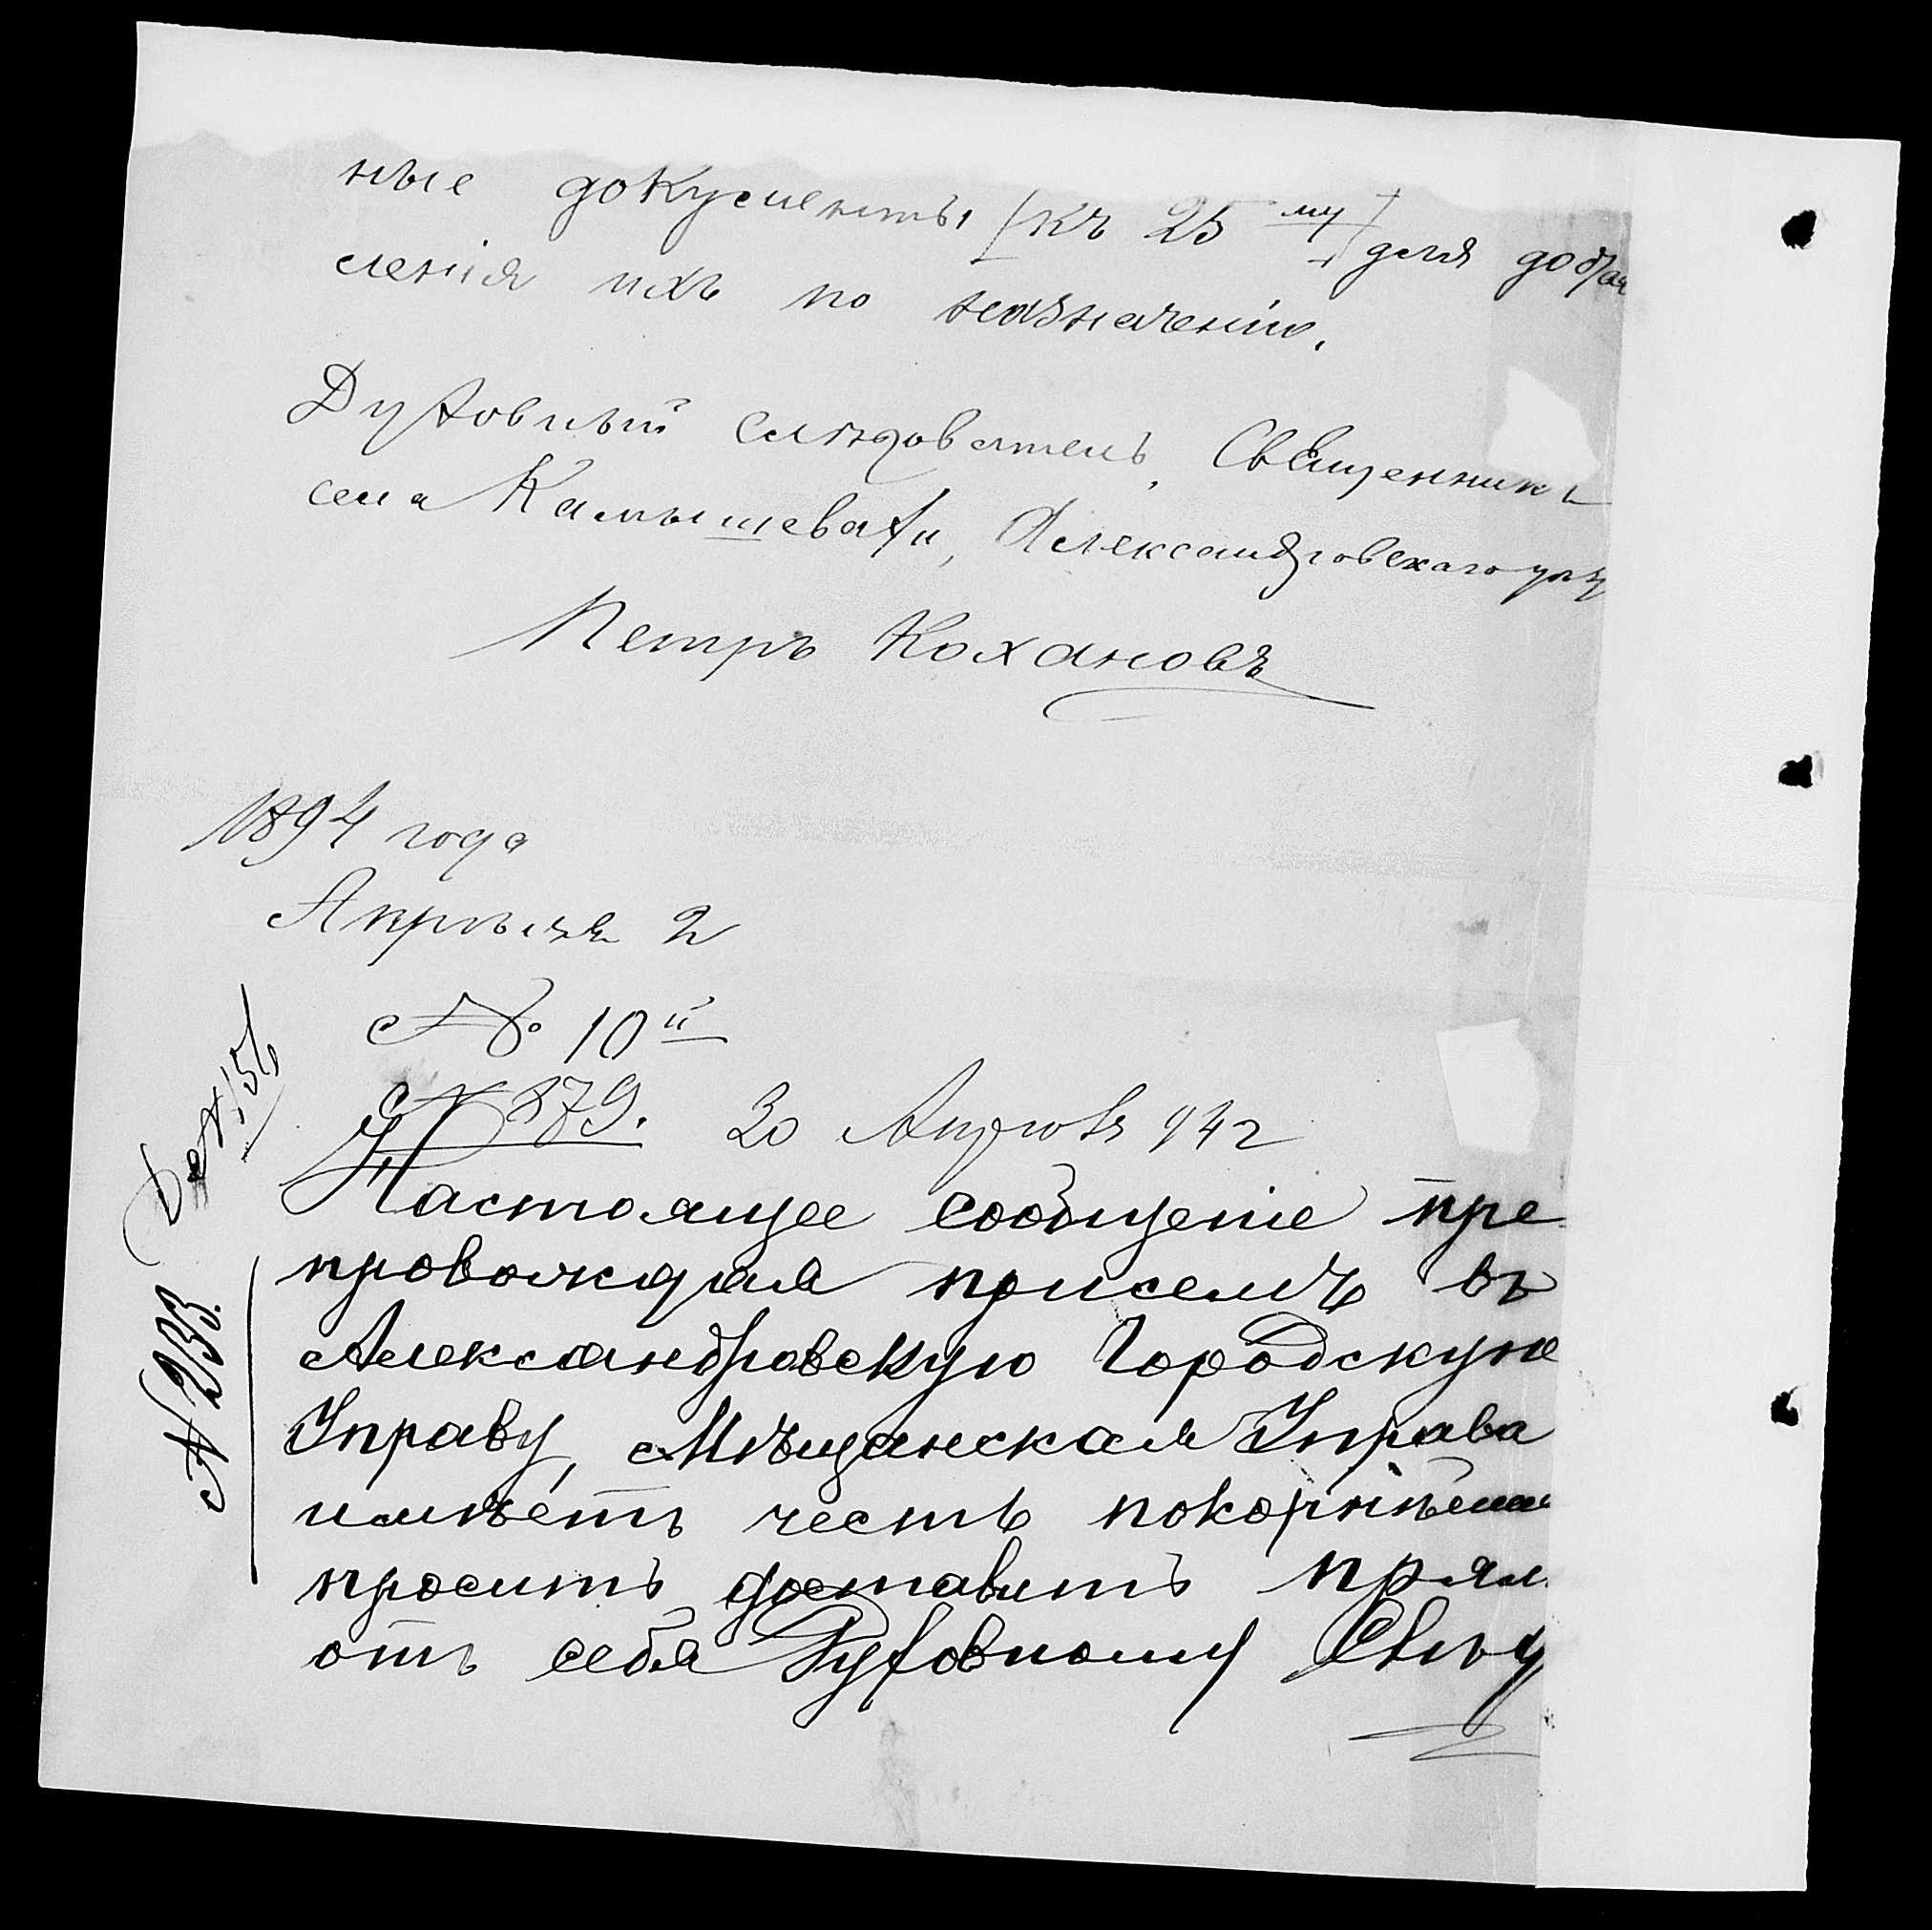 ные документы [къ 25му] для добав
ленія ихъ по назначенію.
Духовный слѣдователь, Священникъ
села Камышевахи, Александровскаго уѣз
Петръ Кохановъ
1894 года
Апрѣля 2
№ 10й
№ 879. 30 Апрѣля 94 г
Настоящее сообщеніе пре
провождая при семъ въ
Александровскую Городскую
Управу, Мѣщанская Управа
имѣетъ честь покорнѣйше
проситъ доставить прям
отъ себя Духовному Слѣд
№ 233.